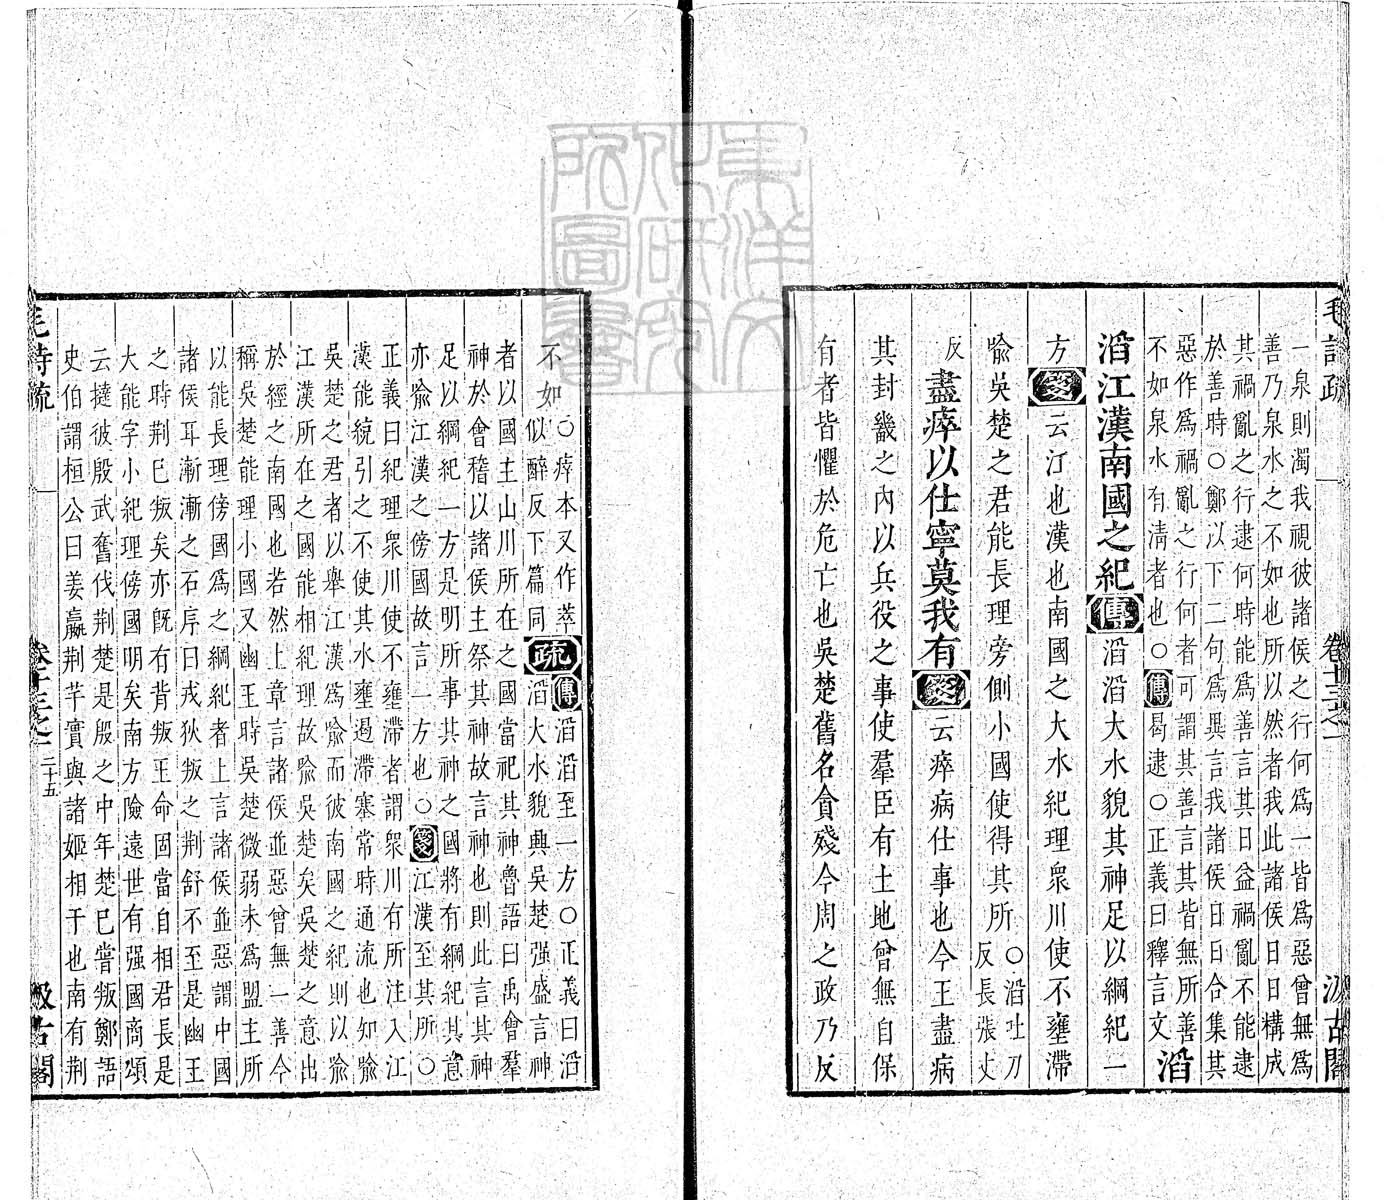 毛詩疏
卷十三之一
汲古閣
一泉則濁我視彼諸侯之行何爲一皆爲惡曾無爲
善乃泉水之不如也所以然者我此諸侯日日構成
其禍亂之行逮何時能爲善言其日益禍亂不能逮
於善時○鄭以下二句爲異言我諸侯日日合集其
惡作爲禍亂之行何者可謂其善言其皆無所善
不如泉水有清者也○傳曷逮○正義曰釋言文
滔
滔江漢南國之紀傳滔滔大水貌其神足以綱紀一
方箋云江也漢也南國之大水紀理衆川使不壅滯
喻吳楚之君能長理旁側小國使得其所○滔吐刀
反長張丈
反
盡瘁以仕寧莫我有箋云瘁病仕事也今王盡病
其封畿之內以兵役之事使羣臣有土地曾無自保
有者皆懼於危亡也吳楚舊名貪殘今周之政乃反
不如
○瘁本又作萃
似醉反下篇同
疏傳滔滔至一方○正義曰滔
滔大水貌興吳楚强盛言神
者以國主山川所在之國當祀其神魯語曰禹會羣
神於會稽以諸侯主祭其神故言神也則此言其神
足以綱紀一方是明所事其神之國將有綱紀其意
亦喻江漢之傍國故言一方也○箋江漢至其所○
正義曰紀理衆川使不壅滯者謂衆川有所注入江
漢能統引之不使其水壅遏滯塞常時通流也知喻
吳楚之君者以舉江漢爲喻而彼南國之紀則以喻
江漢所在之國能相紀理故喻吳楚矣吳楚之意出
於經之南國也若然上章言諸侯並惡曾無一善今
稱吳楚能理小國又幽王時吳楚微弱未爲盟主所
以能長理傍國爲之綱紀者上言諸侯並惡謂中國
諸侯耳漸漸之石序曰戎狄叛之荆舒不至是幽王
之時荆已叛矣亦旣有背叛王命固當自相君長是
大能字小紀理傍國明矣南方險遠世有强國商頌
云撻彼殷武奮伐荆楚是殷之中年楚已嘗叛鄭語
史伯謂桓公曰姜嬴荆芊實與諸姬相干也南有荆
毛詩疏
卷十三之一
二十五
汲古閣
東洋文化研究所圖書